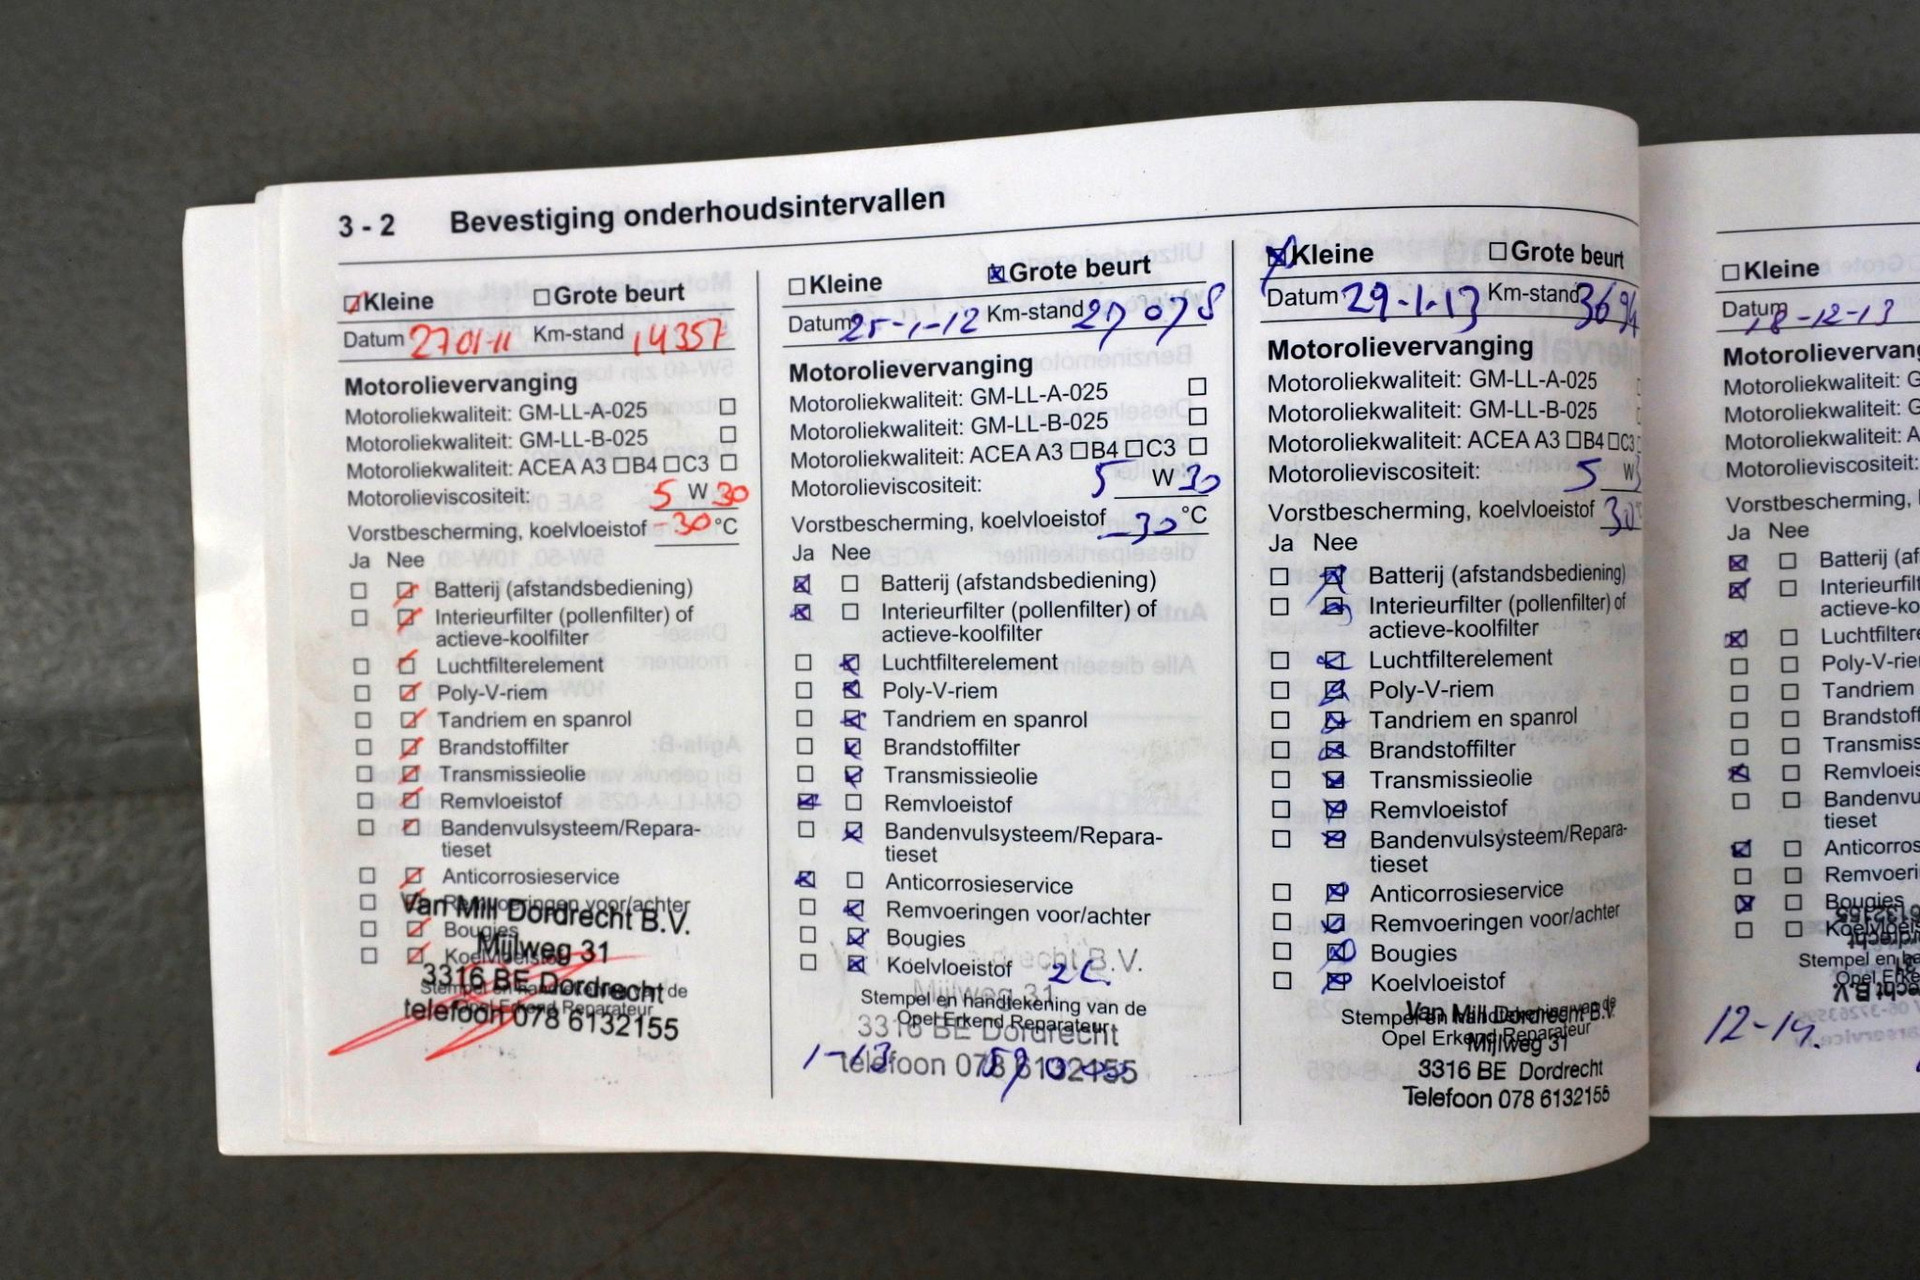 3 - 2 Bevestiging onderhoudsintervallen
Kleine Grote beurt
Datum 27 01-11 Km-stand 14357
Motorolievervanging
Motoroliekwaliteit: GM-LL-A-025
Motoroliekwaliteit: GM-LL-B-025
Motoroliekwaliteit: ACEA A3 B4 C3
Motorolieviscositeit: 5 W 30
Vorstbescherming, koelvloeistof -30 °C
Ja Nee
Batterij (afstandsbediening)
Interieurfilter (pollenfilter) of
actieve-koolfilter
Luchtfilterelement
Poly-V-riem
Tandriem en spanrol
Brandstoffilter
Transmissieolie
Remvloeistof
Bandenvulsysteem/Repara-
tieset
Anticorrosieservice
Remvoeringen voor/achter
Bougies
Koelvloeistof
Stempel en handtekening van de
Opel Erkend Reparateur
Van Mill Dordrecht B.V.
Mijlweg 31
3316 BE Dordrecht
telefoon 078 6132155
Kleine Grote beurt
Datum 25-1-12 Km-stand 27078
Motorolievervanging
Motoroliekwaliteit: GM-LL-A-025
Motoroliekwaliteit: GM-LL-B-025
Motoroliekwaliteit: ACEA A3 B4 C3
Motorolieviscositeit: 5 W 30
Vorstbescherming, koelvloeistof -30 °C
Ja Nee
Batterij (afstandsbediening)
Interieurfilter (pollenfilter) of
actieve-koolfilter
Luchtfilterelement
Poly-V-riem
Tandriem en spanrol
Brandstoffilter
Transmissieolie
Remvloeistof
Bandenvulsysteem/Repara-
tieset
Anticorrosieservice
Remvoeringen voor/achter
Bougies
Koelvloeistof
Stempel en handtekening van de
Opel Erkend Reparateur
Mijlweg 31
3316 BE Dordrecht
telefoon 078 6132155
1-13
Kleine Grote beurt
Datum 29-1-13 Km-stand
Motorolievervanging
Motoroliekwaliteit: GM-LL-A-025
Motoroliekwaliteit: GM-LL-B-025
Motoroliekwaliteit: ACEA A3 B4 C3
Motorolieviscositeit: 5 W
Vorstbescherming, koelvloeistof 30
Ja Nee
Batterij (afstandsbediening)
Interieurfilter (pollenfilter) of
actieve-koolfilter
Luchtfilterelement
Poly-V-riem
Tandriem en spanrol
Brandstoffilter
Transmissieolie
Remvloeistof
Bandenvulsysteem/Repara-
tieset
Anticorrosieservice
Remvoeringen voor/achter
Bougies
Koelvloeistof
Stempel en handtekening van de
Opel Erkend Reparateur
Van Mill Dordrecht B.V.
Mijlweg 31
3316 BE Dordrecht
Telefoon 078 6132155
Kleine
Datum 18-12-13
Motorolievervang
Motoroliekwaliteit: G
Motoroliekwaliteit: G
Motoroliekwaliteit: A
Motorolieviscositeit:
Vorstbescherming,
Ja Nee
Batterij (af
Interieurfil
actieve-ko
Luchtfilter
Poly-V-rie
Tandriem
Brandstof
Transmiss
Remvloeis
Bandenvu
tieset
Anticorros
Remvoeri
Bougies
Koelvloeis
Stempel en
Opel
12-14.